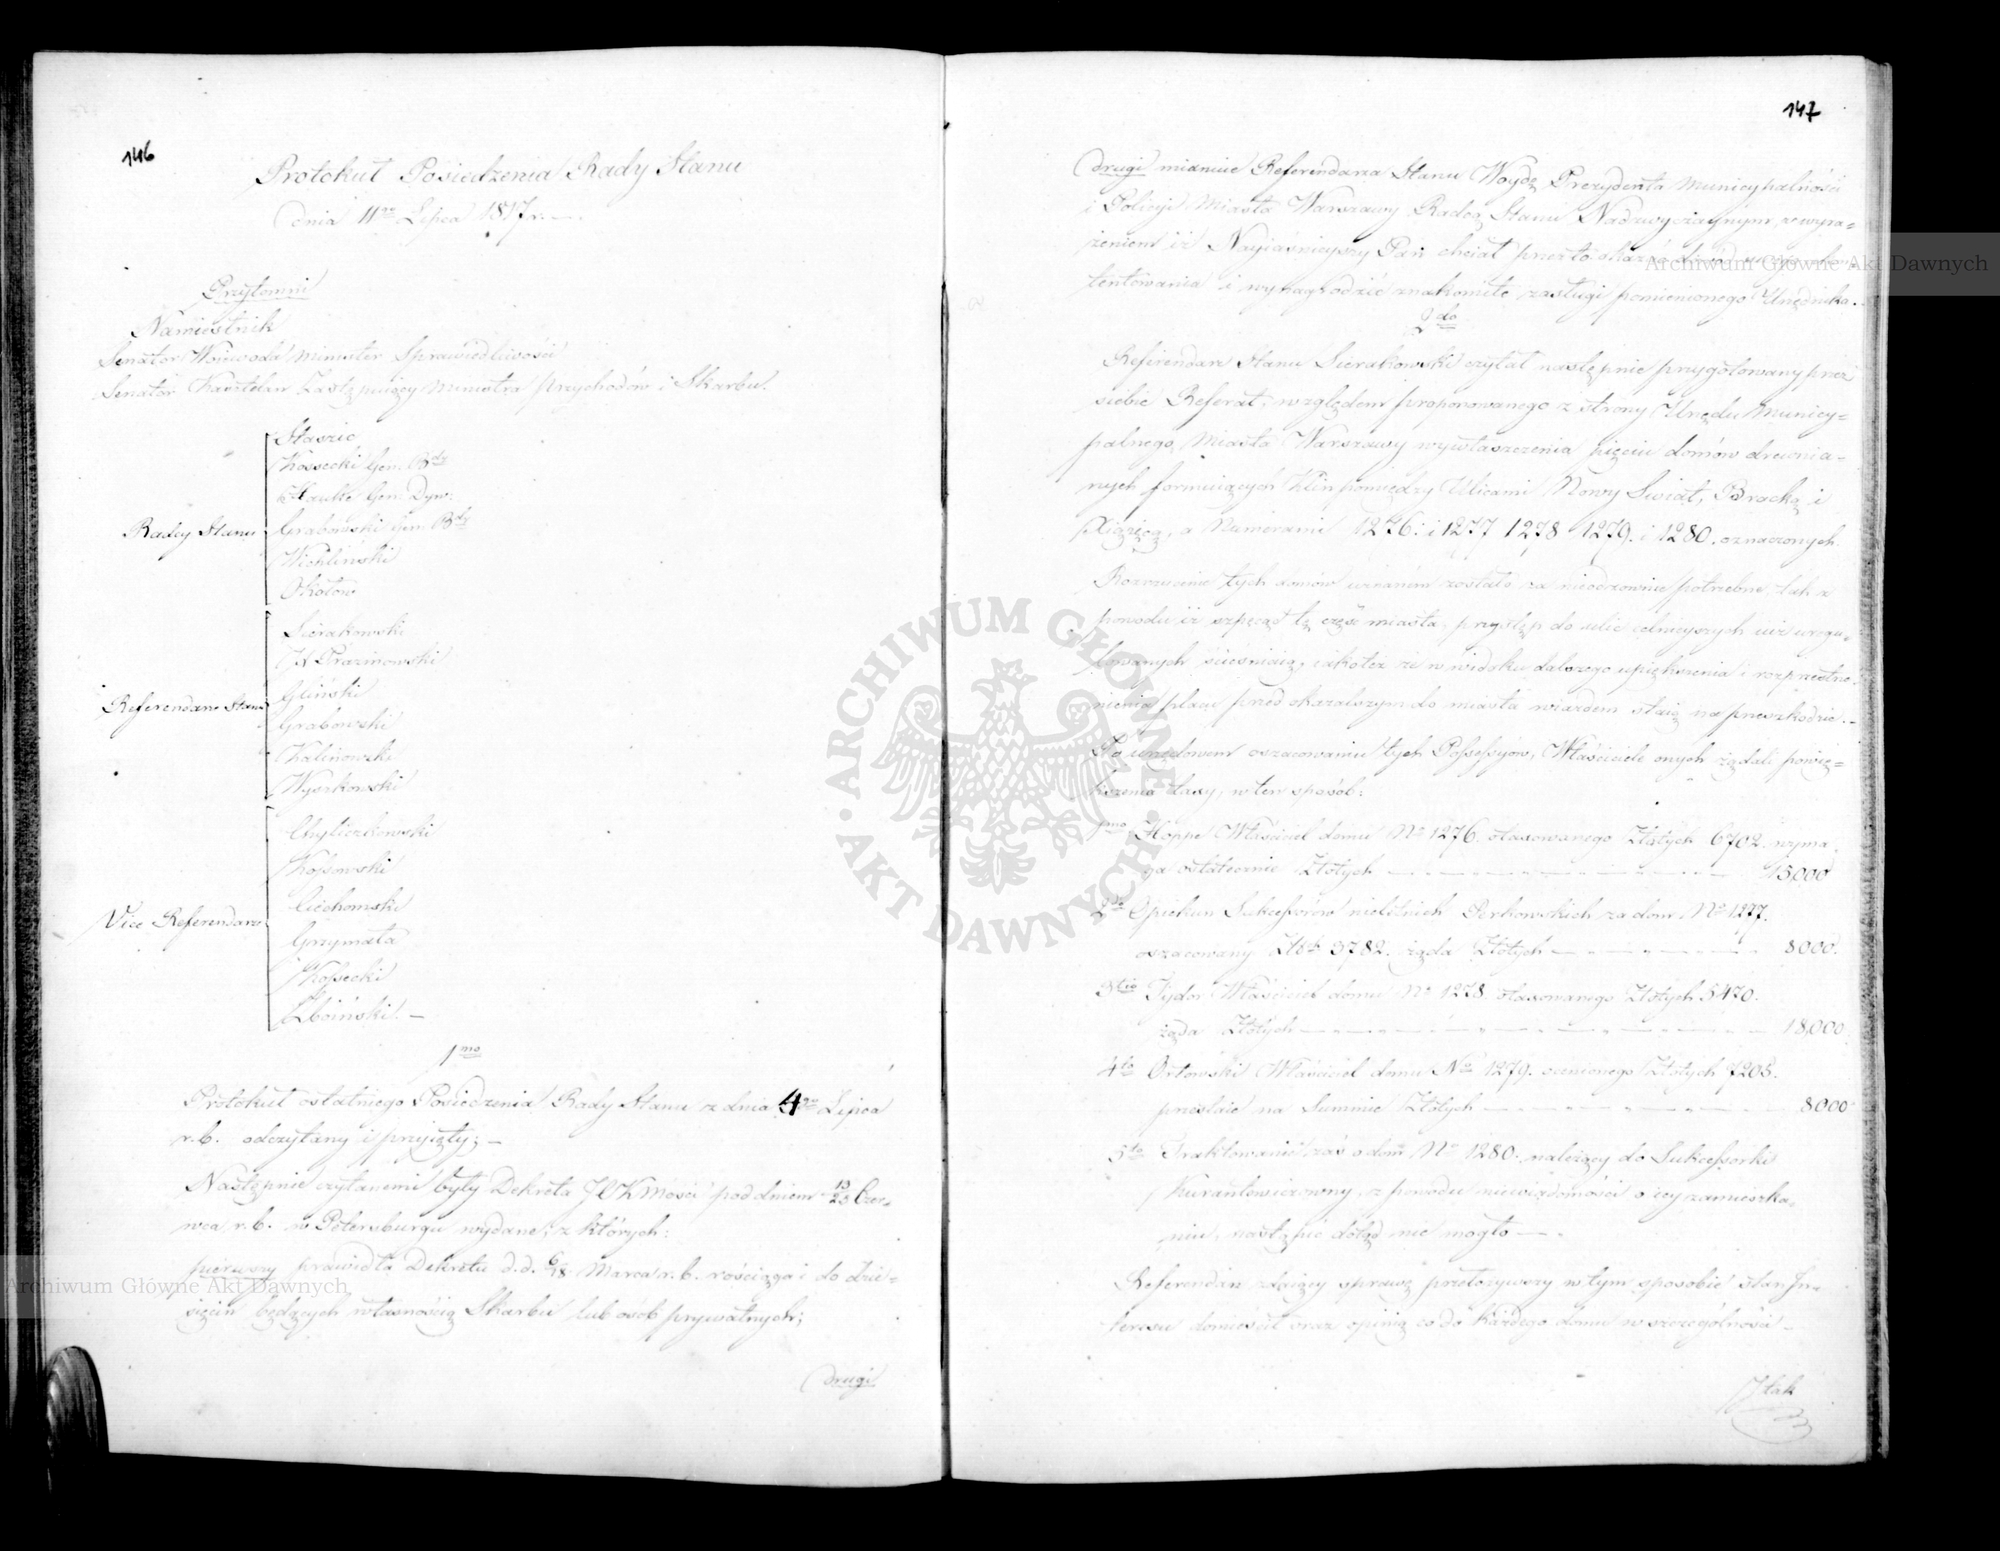 146
Protokuł Posiedzenia Rady Stanu
dnia 11go Lipca 1817 r. —
Przytomni
Namiestnik
Senator Woiewoda Minister Sprawiedliwości
Senator Kasztelan Zastępuiący Ministra Przychodów i Skarbu.
Radcy Stanu
Staszic
Kossecki Gen. Bdy
Hauke Gen. Dyw:
Grabowski Gen. Bdy
Wichliński
Okołow
Referendarze Stanu
Sierakowski
Gliński
Grabowski
Kalinowski
Wyszkowski
Vice Referendarze
Chyliczkowski
Kossowski
Ciechomski
Grzymała
Kossecki
Zboiński. —
1mo
Protokuł ostatniego Posiedzenia Rady Stanu z dnia 4go Lipca
r. b. odczytany i przyięty; —
Następnie czytanemi były Dekreta JCK Mości pod dniem 13/25 Czer-
wca r. b. w Petersburgu wydane, z których:
pierwszy prawidła Dekretu d. d. 6/18 Marca r. b. rościąga i do dzie-
sięcin będących własnością Skarbu lub osób prywatnych;
drugi
147
drugi mianuie Referendarza Stanu Woydę Prezydenta Municypalności
i Policyi Miasta Warszawy Radcą Stanu Nadzwyczaynym, z wyra-
żeniem iż Nayiaśnieyszy Pan chciał przez to okazać dowód
i wynagrodzić znakomite zasługi pomienionego Urzędnika.
2do
Referendarz Stanu Sierakowski czytał następnie przygotowany przez
siebie Referat, względem proponowanego z strony Urzędu Municy-
palnego Miasta Warszawy wywłaszczenia pięciu domów drewnia-
nych formuiących klin pomiędzy Ulicami Nowy Świat, Bracką i
Xiążęcą, a Numerami 1276. i 1277 1278 1279. i 1280. oznaczonych.
Rozrzucenie tych domów uznanem zostało za nieodzownie potrzebne tak z
powodu iż szpecąc tę część miasta, przystęp do ulic celnieyszych iuż uregu-
lowanych ścieśniaią, iakoteż że w widoku dalszego upiększenia i rozprzestrze-
nienia placu przed okazalszym do miasta wiazdem staią na przeszkodzie. —
Po urzędowem oszacowaniu tych Possessyów, Właściciele onych żądali powię-
kszenia taxy, w ten sposób:
1mo Hoppe Właściciel domu No 1276. otaxowanego Złotych 6702. wyma-
ga ostatecznie Złotych — 15000
2do Opiekun Sukcessorów nieletnich Perkowskich za dom No 1277.
oszacowany Złch 3782. żąda Złotych — 8000.
3tio Właściciel domu No 1278. otaxowanego Złotych 5470.
żąda Złotych — 18,000.
4to Orłowski Właściciel domu No 1279. ocenionego Złotych 7205.
przestaie na Summie Złotych — 8000
5to Traktowanie zaś o dom No 1280. należący do Sukcessorki
Kurantowiczowny, z powodu niewiadomości o iey zamieszka-
niu, nastąpić dotąd nie mogło —.
Referendarz zdaiący sprawę przełożywszy w tym sposobie stan In-
teressu domieścił oraz opinią co do każdego domu w szczególności —
I tak
ARCHIWUM GŁÓWNE AKT DAWNYCH
Archiwum Główne Akt Dawnych
Archiwum Główne Akt Dawnych